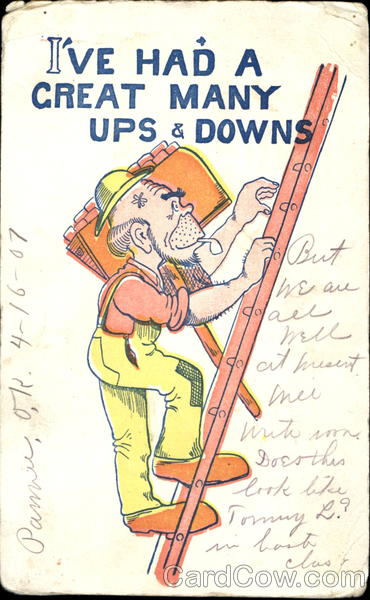 I'VE HAD A
GREAT MANY
UPS & DOWNS
But
we are
all
well
at present
Will
write soon.
Does this
look like
Tommy L.?
in bask
clas
O.K. 4-16-07
CardCow.com